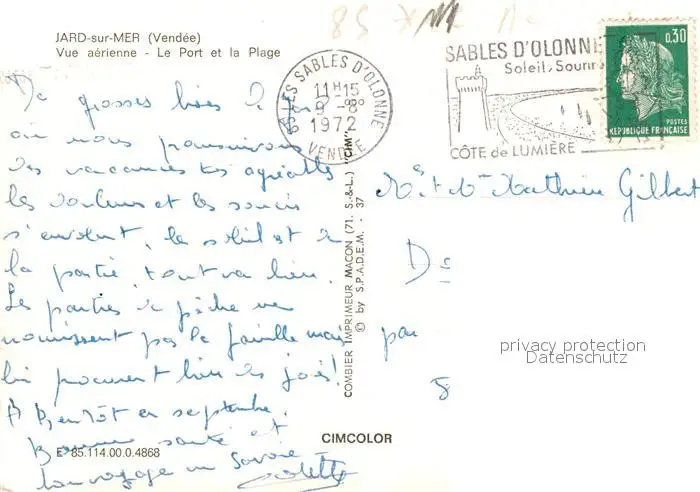 85
JARD-sur-MER (Vendée)
Vue aérienne - Le Port et la Plage
85 LES SABLES D'OLONNE
11H15
9-8
1972
VENDÉE
SABLES D'OLONNE
Soleil, Souri
CÔTE de LUMIÈRE
0,30
POSTES
REPUBLIQUE FRANÇAISE
De grosses bises de Jard
où nous poursuivons
des vacances très agréables
les douleurs et les soucis
s'envolent, le soleil est de
la partie, tout va bien.
Les parties de pêche ne
nourrissent pas la famille mais
lui procurent bien des joies!
A Bientôt en septembre.
Bonne santé et
bon voyage en Savoie
Colette
E 85.114.00.0.4868
COMBIER IMPRIMEUR MACON (71. S.-&-L.) "CIM"
© by S.P.A.D.E.M. - 37
CIMCOLOR
Mr et Me Mathieu Gilbert
par
privacy protection
Datenschutz